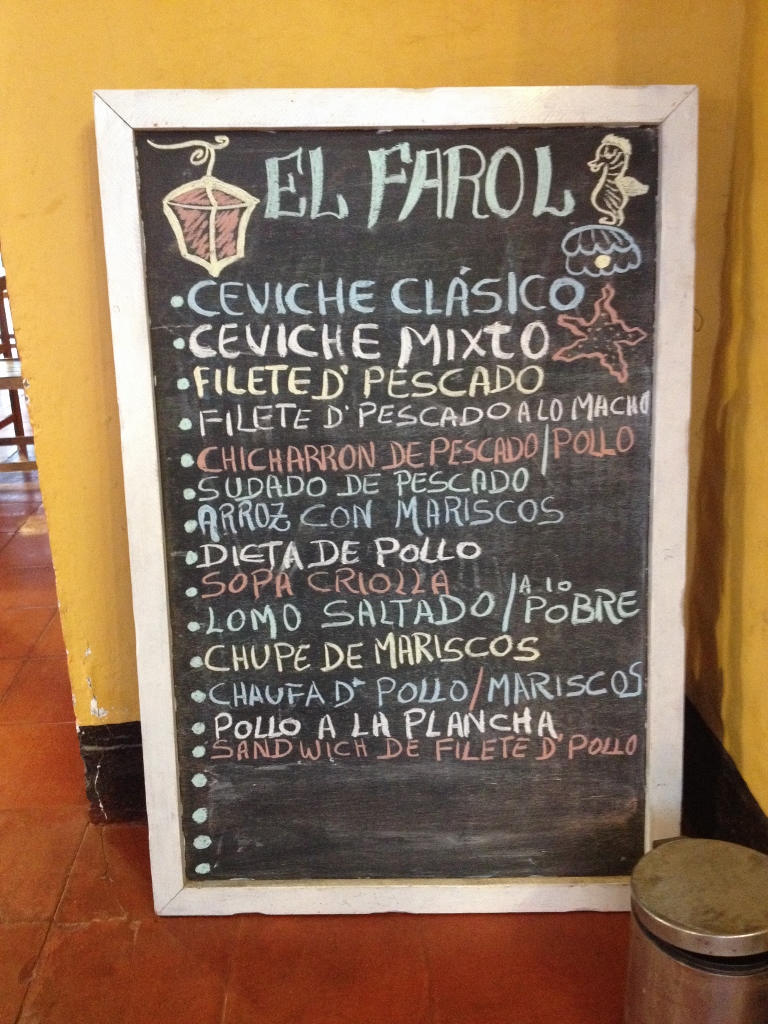 EL FAROL
• CEVICHE CLÁSICO
• CEVICHE MIXTO
• FILETE D' PESCADO
• FILETE D' PESCADO A LO MACHO
• CHICHARRON DE PESCADO/POLLO
• SUDADO DE PESCADO
• ARROZ CON MARISCOS
• DIETA DE POLLO
• SOPA CRIOLLA
• LOMO SALTADO/A lo POBRE
• CHUPE DE MARISCOS
• CHAUFA D' POLLO/MARISCOS
• POLLO A LA PLANCHA
• SANDWICH DE FILETE D' POLLO